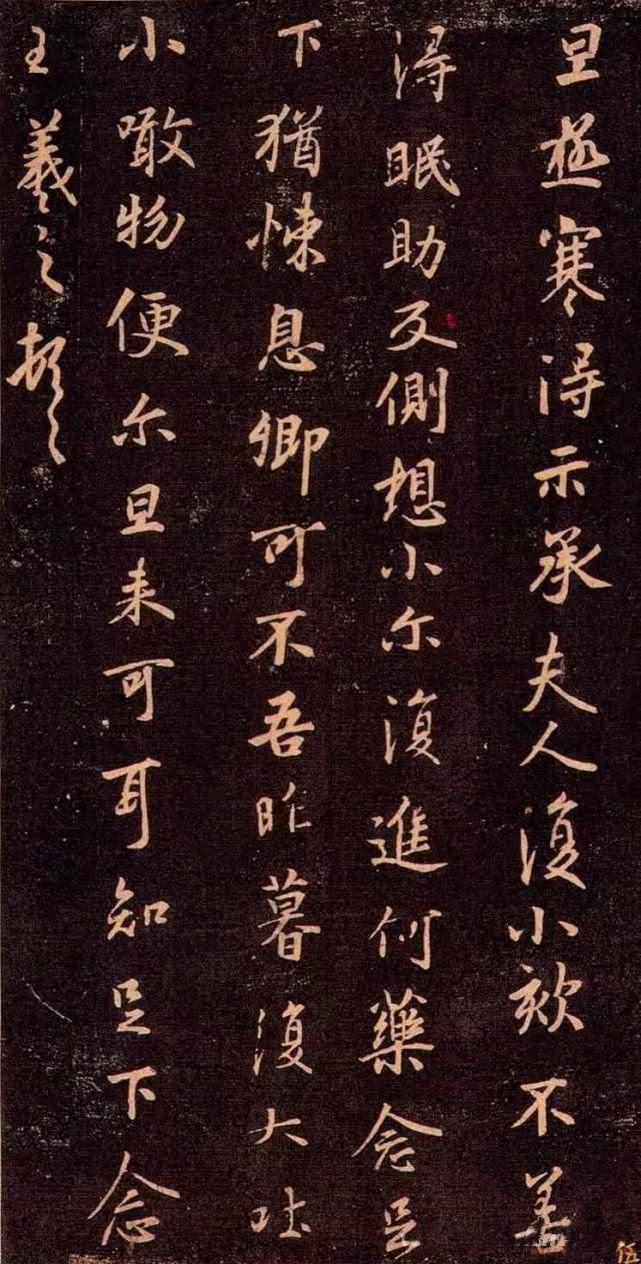 旦極寒得示承夫人復小欬不善
得眠助反側想小尔復進何藥念足
下猶悚息卿可不吾昨暮復大吐
小噉物便尔旦来可耳知足下念
王羲之頓
伍